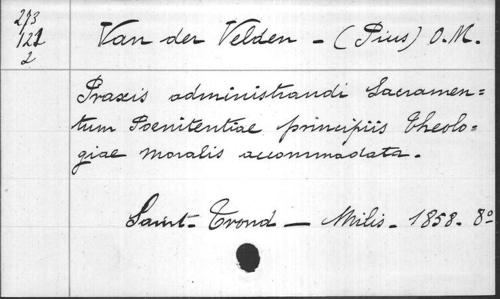 273
121
2
Van der Velden - (Pius) O.M.
Praxis administrandi Sacramen=
tum Poenitentiae principiis Theolo=
giae moralis accommodata.
Saint-Trond - Milis. 1858. 8º